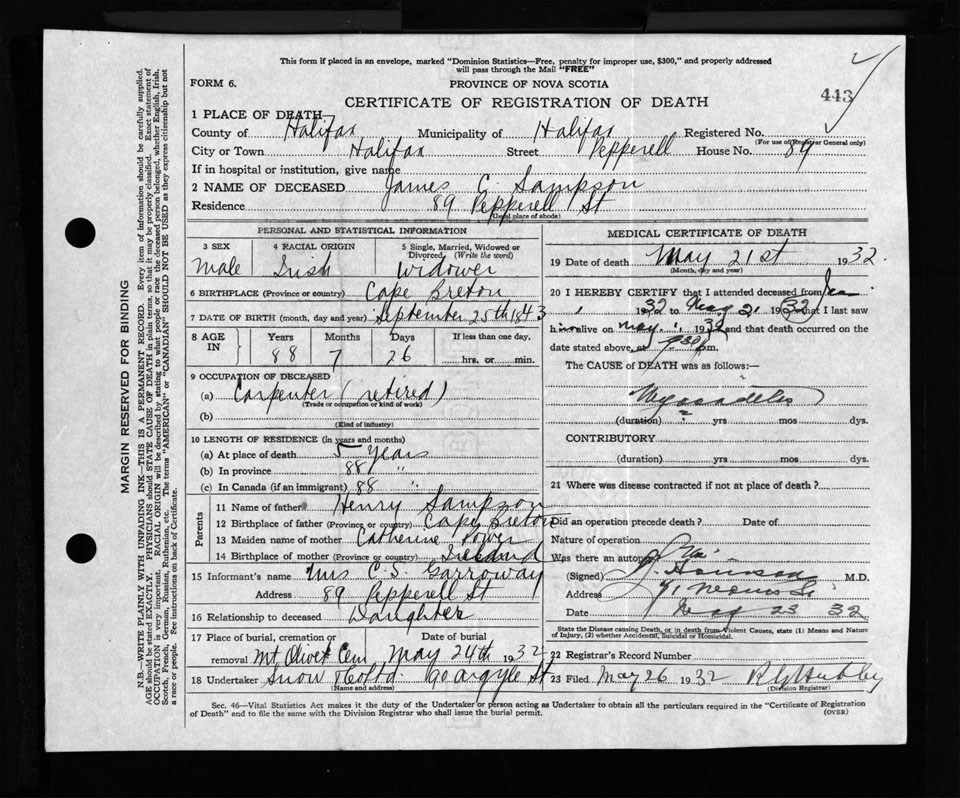 This form if placed in an envelope, marked "Dominion Statistics—Free, penalty for improper use, $300," and properly addressed
will pass through the Mail "FREE"
FORM 6.
PROVINCE OF NOVA SCOTIA
443
CERTIFICATE OF REGISTRATION OF DEATH
1 PLACE OF DEATH
County of Halifax Municipality of Halifax Registered No.
(For use of Registrar General only)
City or Town Halifax Street Pepperell House No. 89
If in hospital or institution, give name
2 NAME OF DECEASED James C. Sampson
Residence 89 Pepperell St
(Usual place of abode)
PERSONAL AND STATISTICAL INFORMATION
3 SEX 4 RACIAL ORIGIN 5 Single, Married, Widowed or Divorced (Write the word)
Male Irish Widower
6 BIRTHPLACE (Province or country) Cape Breton
7 DATE OF BIRTH (month, day and year) September 25th 1843
8 AGE IN Years Months Days If less than one day,
88 7 26 hrs. or min.
9 OCCUPATION OF DECEASED
(a) Carpenter (retired)
(Trade or occupation or kind of work)
(b)
(Kind of industry)
10 LENGTH OF RESIDENCE (in years and months)
(a) At place of death 5 years
(b) In province 88 "
(c) In Canada (if an immigrant) 88 "
Parents
11 Name of father Henry Sampson
12 Birthplace of father (Province or country) Cape Breton
13 Maiden name of mother Catherine Power
14 Birthplace of mother (Province or country) Ireland
15 Informant's name Mrs C. S. Garroway
Address 89 Pepperell St
16 Relationship to deceased Daughter
17 Place of burial, cremation or removal Mt Olivet Cem Date of burial May 24th 1932
18 Undertaker Snow & Co Ltd. 90 Argyle St
(Name and address)
MEDICAL CERTIFICATE OF DEATH
19 Date of death May 21st 1932.
(Month, day and year)
20 I HEREBY CERTIFY that I attended deceased from Jan
1932 to May 21 1932 that I last saw
him alive on May " 1932 and that death occurred on the
date stated above, at 730 p.m.
The CAUSE of DEATH was as follows:
(duration) ? yrs mos dys.
CONTRIBUTORY
(duration) yrs mos dys.
21 Where was disease contracted if not at place of death?
Did an operation precede death? Date of
Nature of operation
Was there an autopsy? No
(Signed) M.D.
Address
Date May 23 32
State the Disease causing Death, or in death from Violent Causes, state (1) Means and Nature
of Injury, (2) whether Accidental, Suicidal or Homicidal.
22 Registrar's Record Number
23 Filed May 26 1932
(Division Registrar)
Sec. 46—Vital Statistics Act makes it the duty of the Undertaker or person acting as Undertaker to obtain all the particulars required in the "Certificate of Registration
of Death" and to file the same with the Division Registrar who shall issue the burial permit.
(OVER)
MARGIN RESERVED FOR BINDING
N.B.—WRITE PLAINLY WITH UNFADING INK—THIS IS A PERMANENT RECORD. Every item of information should be carefully supplied.
AGE should be stated EXACTLY. PHYSICIANS should STATE CAUSE OF DEATH in plain terms, so that it may be properly classified. Exact statement of
OCCUPATION is very important. RACIAL ORIGIN will be described by stating to what people or race the deceased person belonged, whether English, Irish,
Scotch, French, German, Russian, Ruthenian, etc. The terms "AMERICAN" or "CANADIAN" SHOULD NOT BE USED as they express citizenship but not
a race or people. See instructions on back of Certificate.